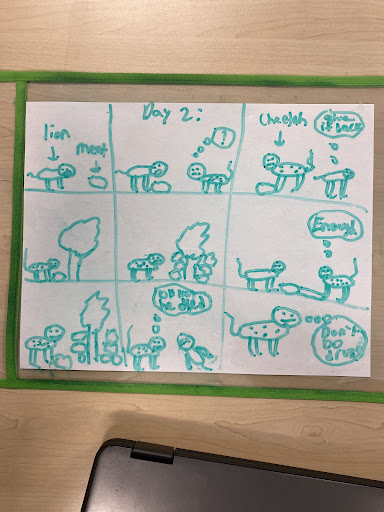 Day 2:
lion
meat
?
Cheetah
give
it back
Enough
oh no
he died
Don't
Do
drugs